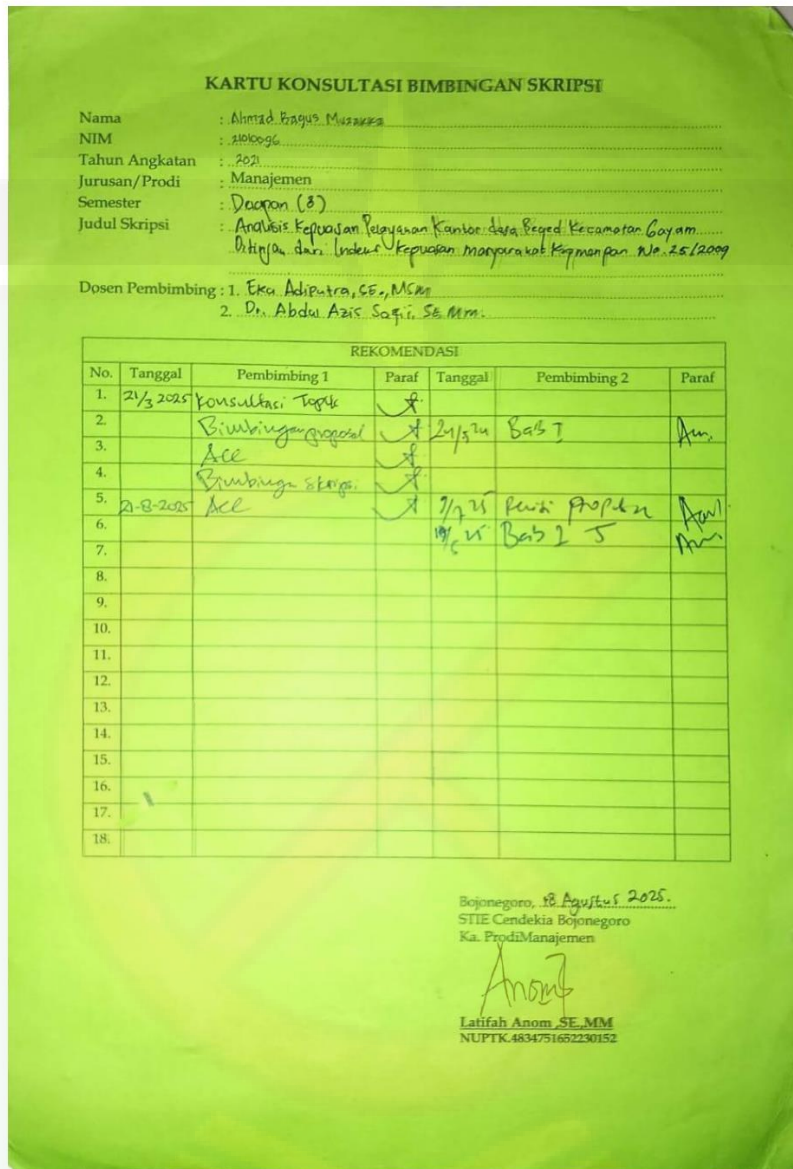 KARTU KONSULTASI BIMBINGAN SKRIPSI
Nama : Ahmad Bagus Muzakka
NIM : 21010096
Tahun Angkatan : 2021
Jurusan/Prodi : Manajemen
Semester : Delapan (8)
Judul Skripsi : Analisis Kepuasan Pelayanan Kantor desa Beged Kecamatan Gayam
Ditinjau dari Indeks Kepuasan masyarakat Kepmenpan No. 25/2009
Dosen Pembimbing : 1. Eka Adiputra, SE., MSM
2. Dr. Abdul Azis Safii, SE. MM.
REKOMENDASI
No. Tanggal Pembimbing 1 Paraf Tanggal Pembimbing 2 Paraf
1. 21/3 2025 Konsultasi Topik
2. Bimbingan proposal Bab I
3. Acc
4. Bimbingan skripsi
5. 21-8-2025 Acc Revisi
6. Bab
7.
8.
9.
10.
11.
12.
13.
14.
15.
16.
17.
18.
Bojonegoro, 18 Agustus 2025.
STIE Cendekia Bojonegoro
Ka. ProdiManajemen
Anom
Latifah Anom ,SE.,MM
NUPTK.4834751652230152